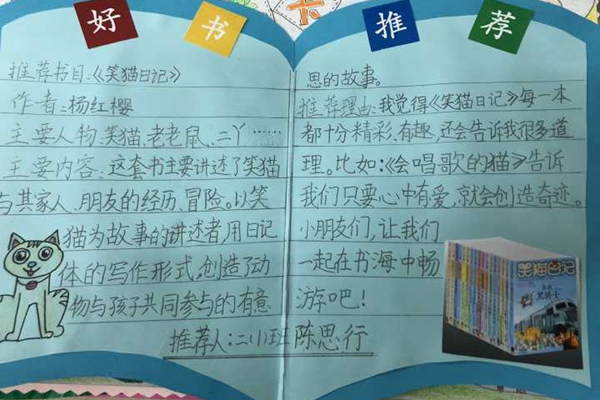 好书推荐
推荐书目：《笑猫日记》
作者：杨红樱
主要人物：笑猫、老老鼠、二丫……
主要内容：这套书主要讲述了笑猫
与其家人、朋友的经历、冒险。以笑
猫为故事的讲述者，用日记
体的写作形式，创造了动
物与孩子共同参与的有意
思的故事。
推荐理由：我觉得《笑猫日记》每一本
都十分精彩、有趣，还会告诉我很多道
理。比如：《会唱歌的猫》告诉
我们只要心中有爱，就会创造奇迹。
小朋友们，让我们
一起在书海中畅
游吧！
推荐人：二(1)班 陈思行
笑猫日记